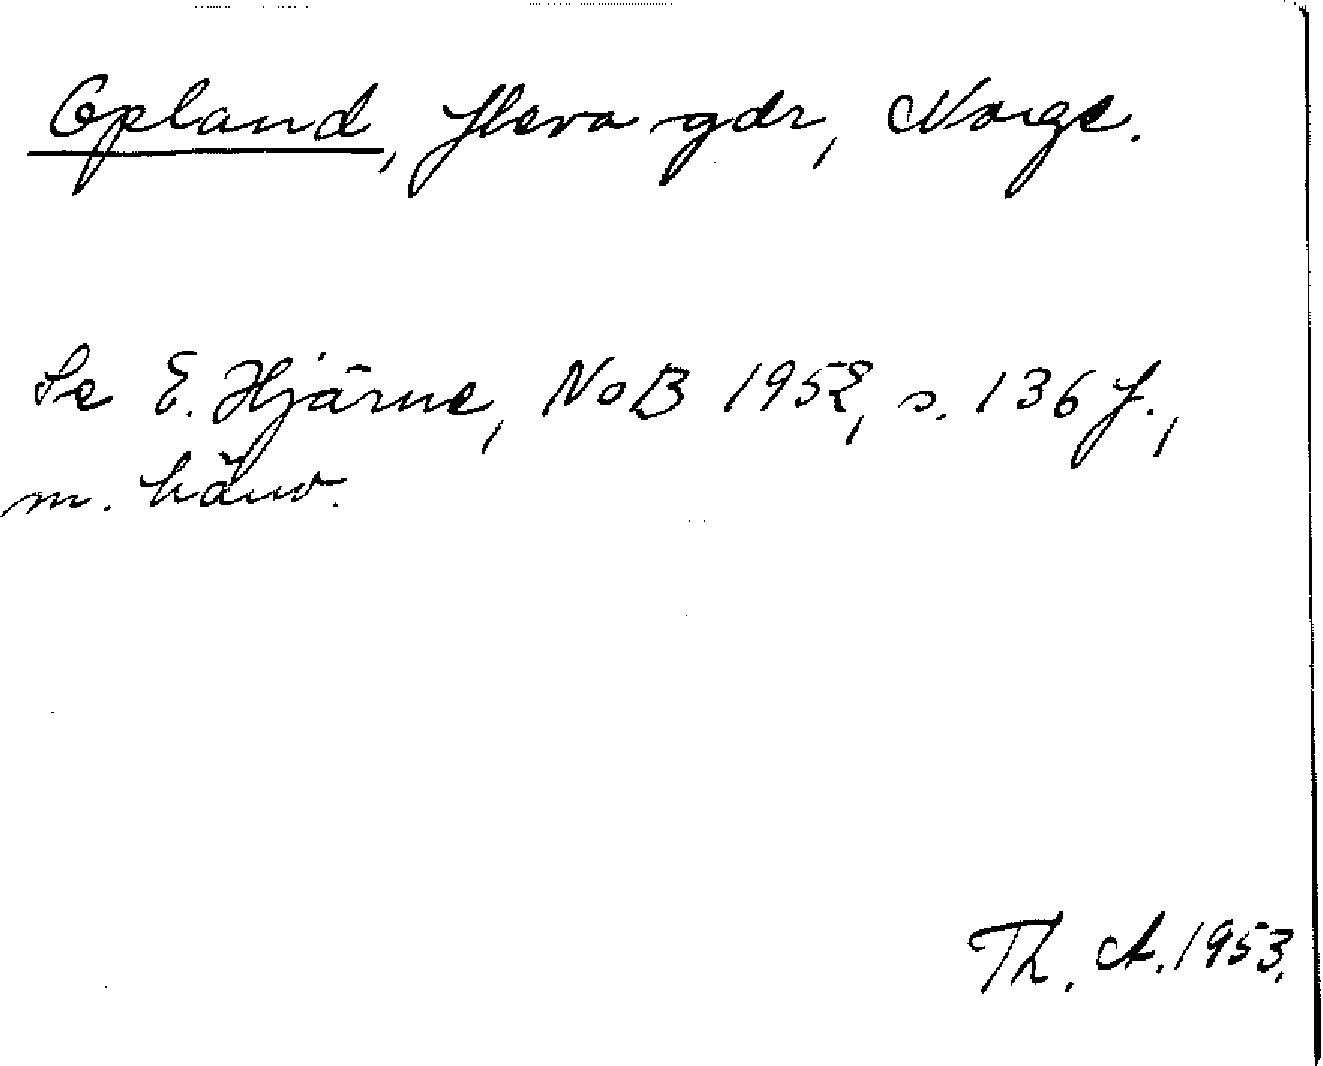 Opland, flera gdr, Norge.
Se E. Hjärne, NoB 1952, s. 136 f.,
m. hänv.
Th. A. 1953.